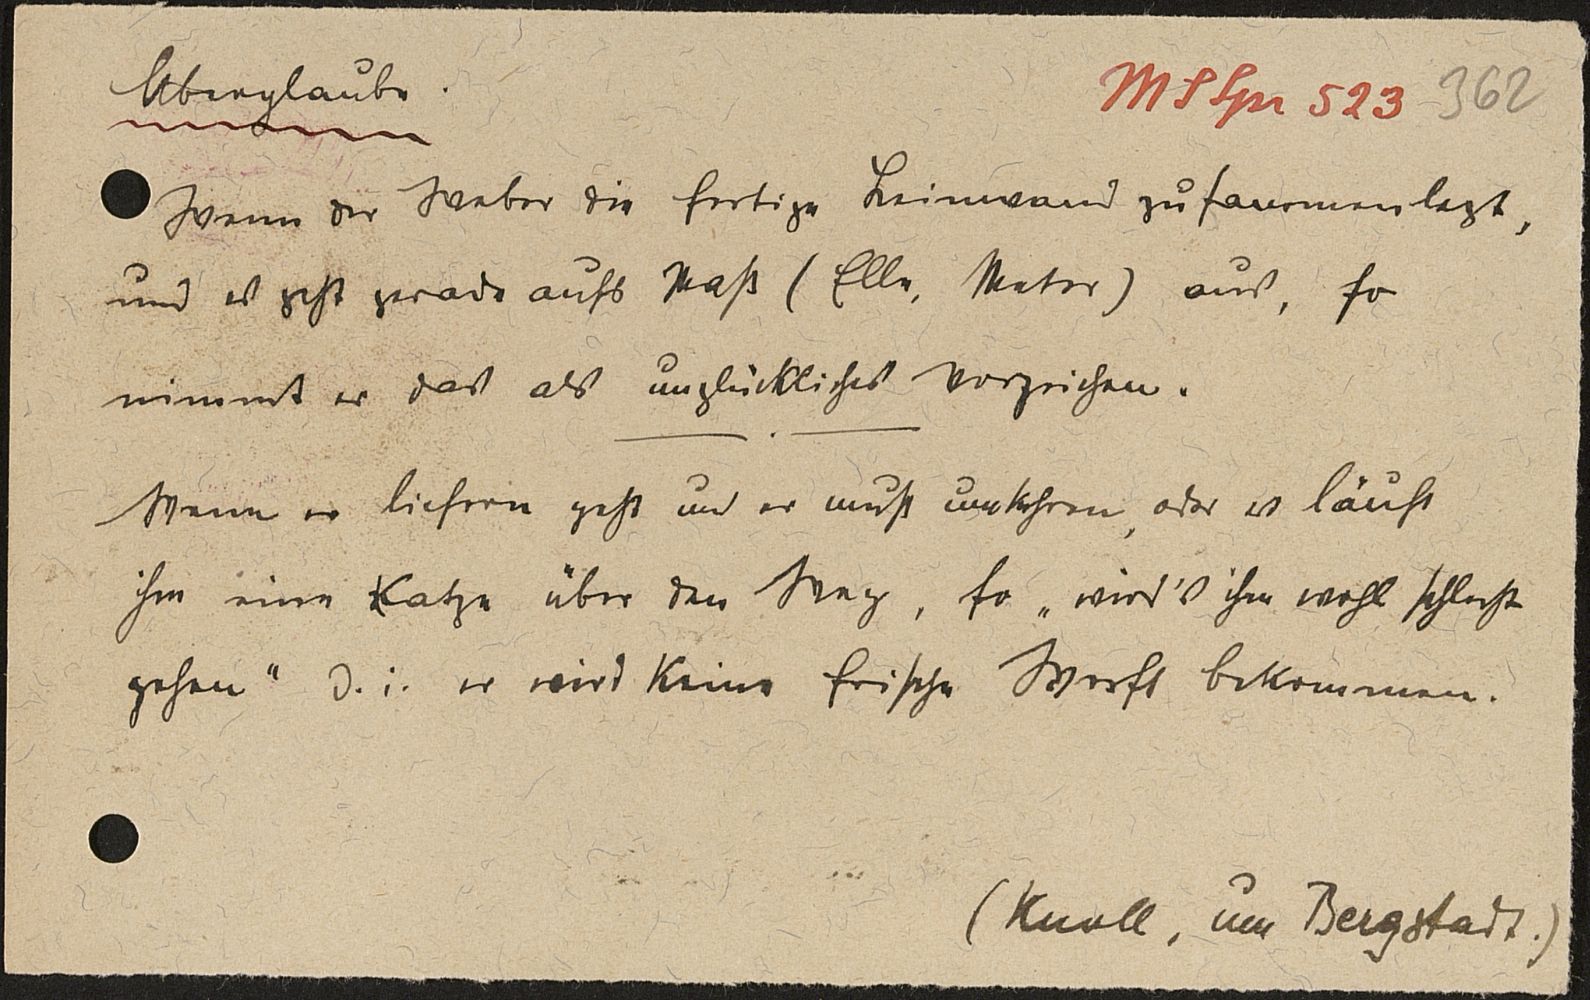 Aberglaube.
MSSpr 523 362
Wenn der Weber die fertige Leinwand zusammenlegt,
und es geht gerade aufs Maß (Elle, Meter) aus, so
nimmt er das als unglückliches Vorzeichen.
Wenn er liefern geht und er muß umkehren, oder es läuft
ihm eine Katze über den Weg, so „wird's ihm wohl schlecht
gehen" d. i. er wird keine frische Werft bekommen.
(Knoll, um Bergstadt.)